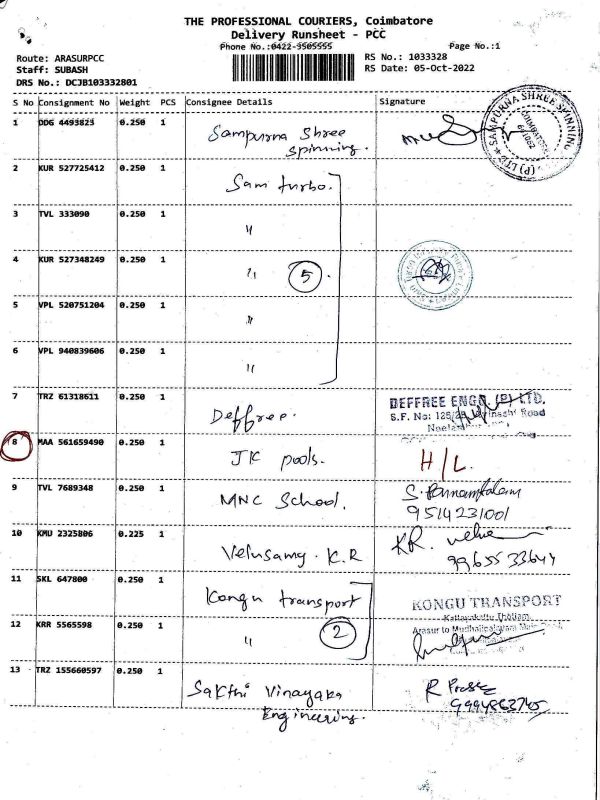 THE PROFESSIONAL COURIERS, Coimbatore
Delivery Runsheet - PCC
Phone No.:0422-5505555
Page No.:1
Route: ARASURPCC
Staff: SUBASH
DRS No.: DCJB103332801
RS No.: 1033328
RS Date: 05-Oct-2022
S No Consignment No Weight PCS Consignee Details Signature
1 DDG 4493823 0.250 1 Sampurna Shree
Spinning.
SAMPURNA SHREE SPINNING (P) LTD
2 KUR 527725412 0.250 1 Sam turbo.
3 TVL 333090 0.250 1 "
4 KUR 527348249 0.250 1 " 5
5 VPL 520751204 0.250 1 "
6 VPL 940839606 0.250 1 "
7 TRZ 61318611 0.250 1 Deffree. DEFFREE ENGG. (P) LTD.
S.F. No: Road
8 MAA 561659490 0.250 1 JK pools. H/L
9 TVL 7689348 0.250 1 MNC School.
9514231001
10 KMU 2325806 0.225 1 Velusamy. K.R KR.
9965533644
11 SKL 647800 0.250 1 Kongu transport KONGU TRANSPORT
Arasur to
12 KRR 5565598 0.250 1 " 2
13 TRZ 155660597 0.250 1 Sakthi Vinayaka
Engineering.
R
9994863745